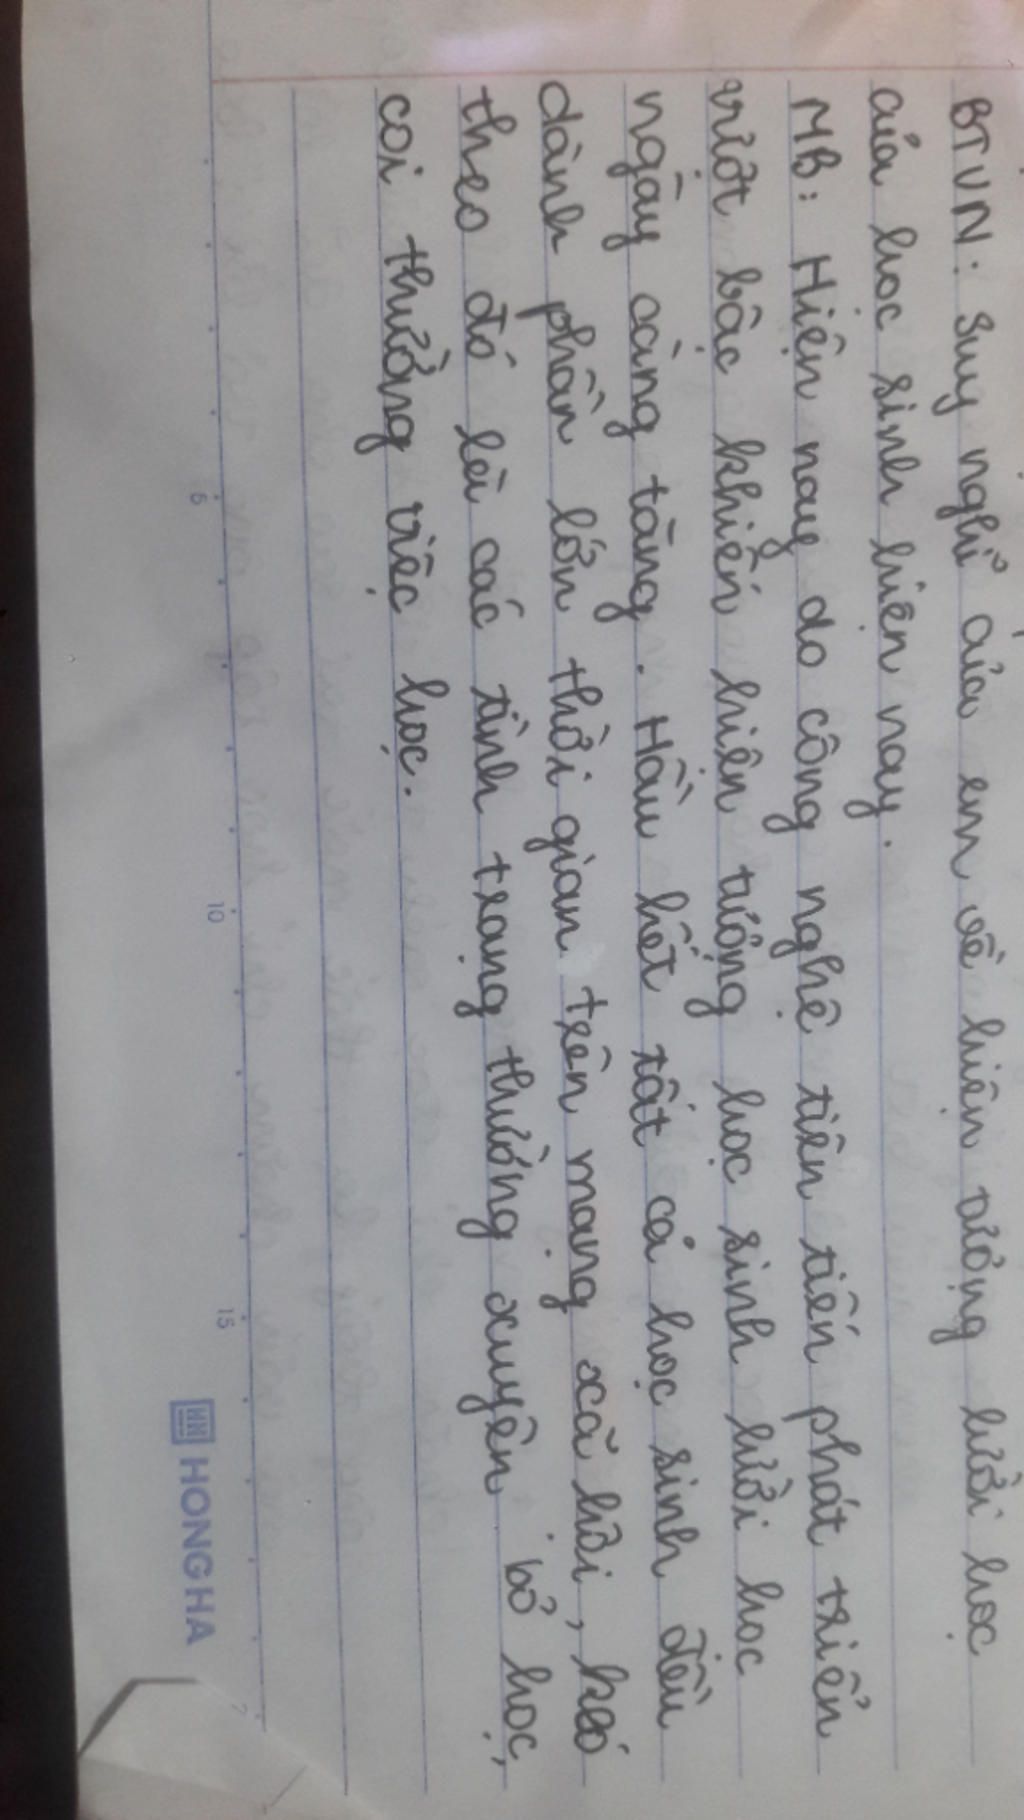 BTVN: Suy nghĩ của em về hiện tượng lười học
của học sinh hiện nay.
MB: Hiện nay do công nghệ tiên tiến phát triển
vượt bậc khiến hiện tượng học sinh lười học
ngày càng tăng. Hầu hết tất cả học sinh đều
dành phần lớn thời gian trên mạng xã hội, kéo
theo đó là các tình trạng thường xuyên bỏ học,
coi thường việc học.
5
10
15
HONG HA